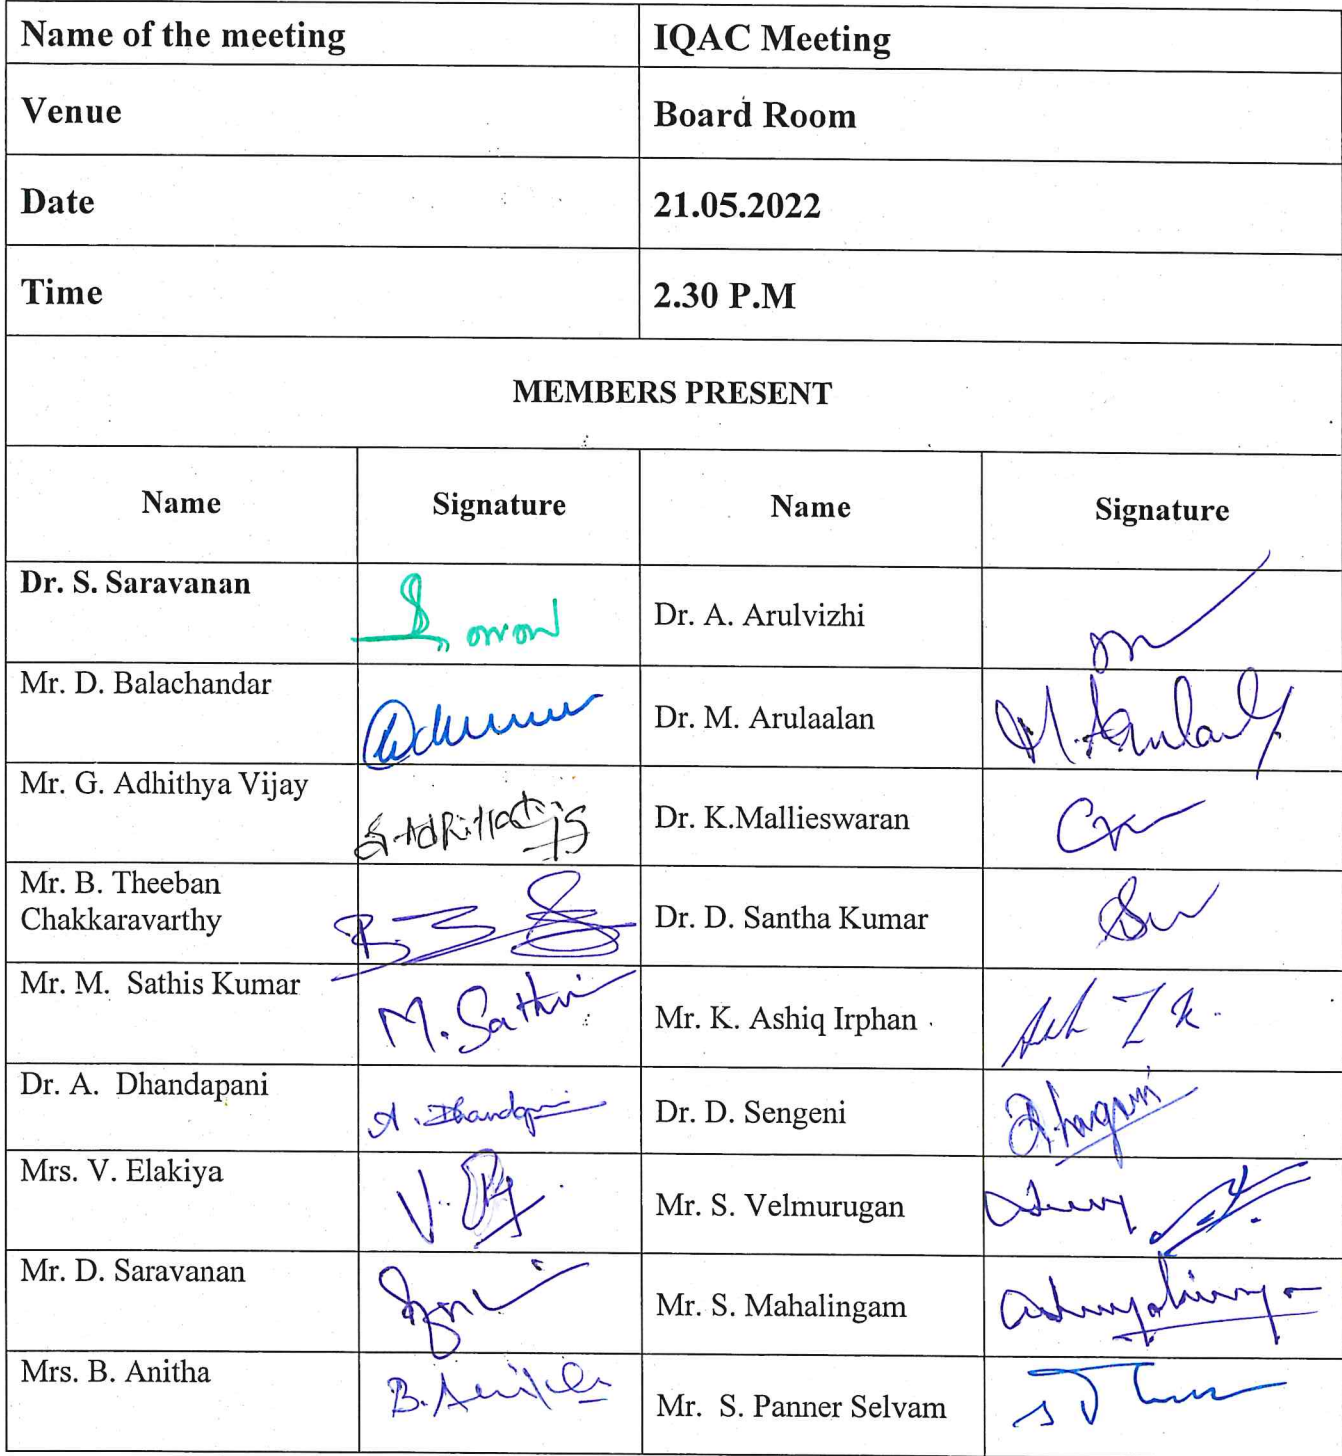 Name of the meeting IQAC Meeting
Venue Board Room
Date 21.05.2022
Time 2.30 P.M
MEMBERS PRESENT
Name Signature Name Signature
Dr. S. Saravanan Dr. A. Arulvizhi
Mr. D. Balachandar Dr. M. Arulaalan
Mr. G. Adhithya Vijay Dr. K.Mallieswaran
Mr. B. Theeban
Chakkaravarthy Dr. D. Santha Kumar
Mr. M. Sathis Kumar M. Sathi Mr. K. Ashiq Irphan
Dr. A. Dhandapani Dr. D. Sengeni
Mrs. V. Elakiya Mr. S. Velmurugan
Mr. D. Saravanan Mr. S. Mahalingam
Mrs. B. Anitha Mr. S. Panner Selvam